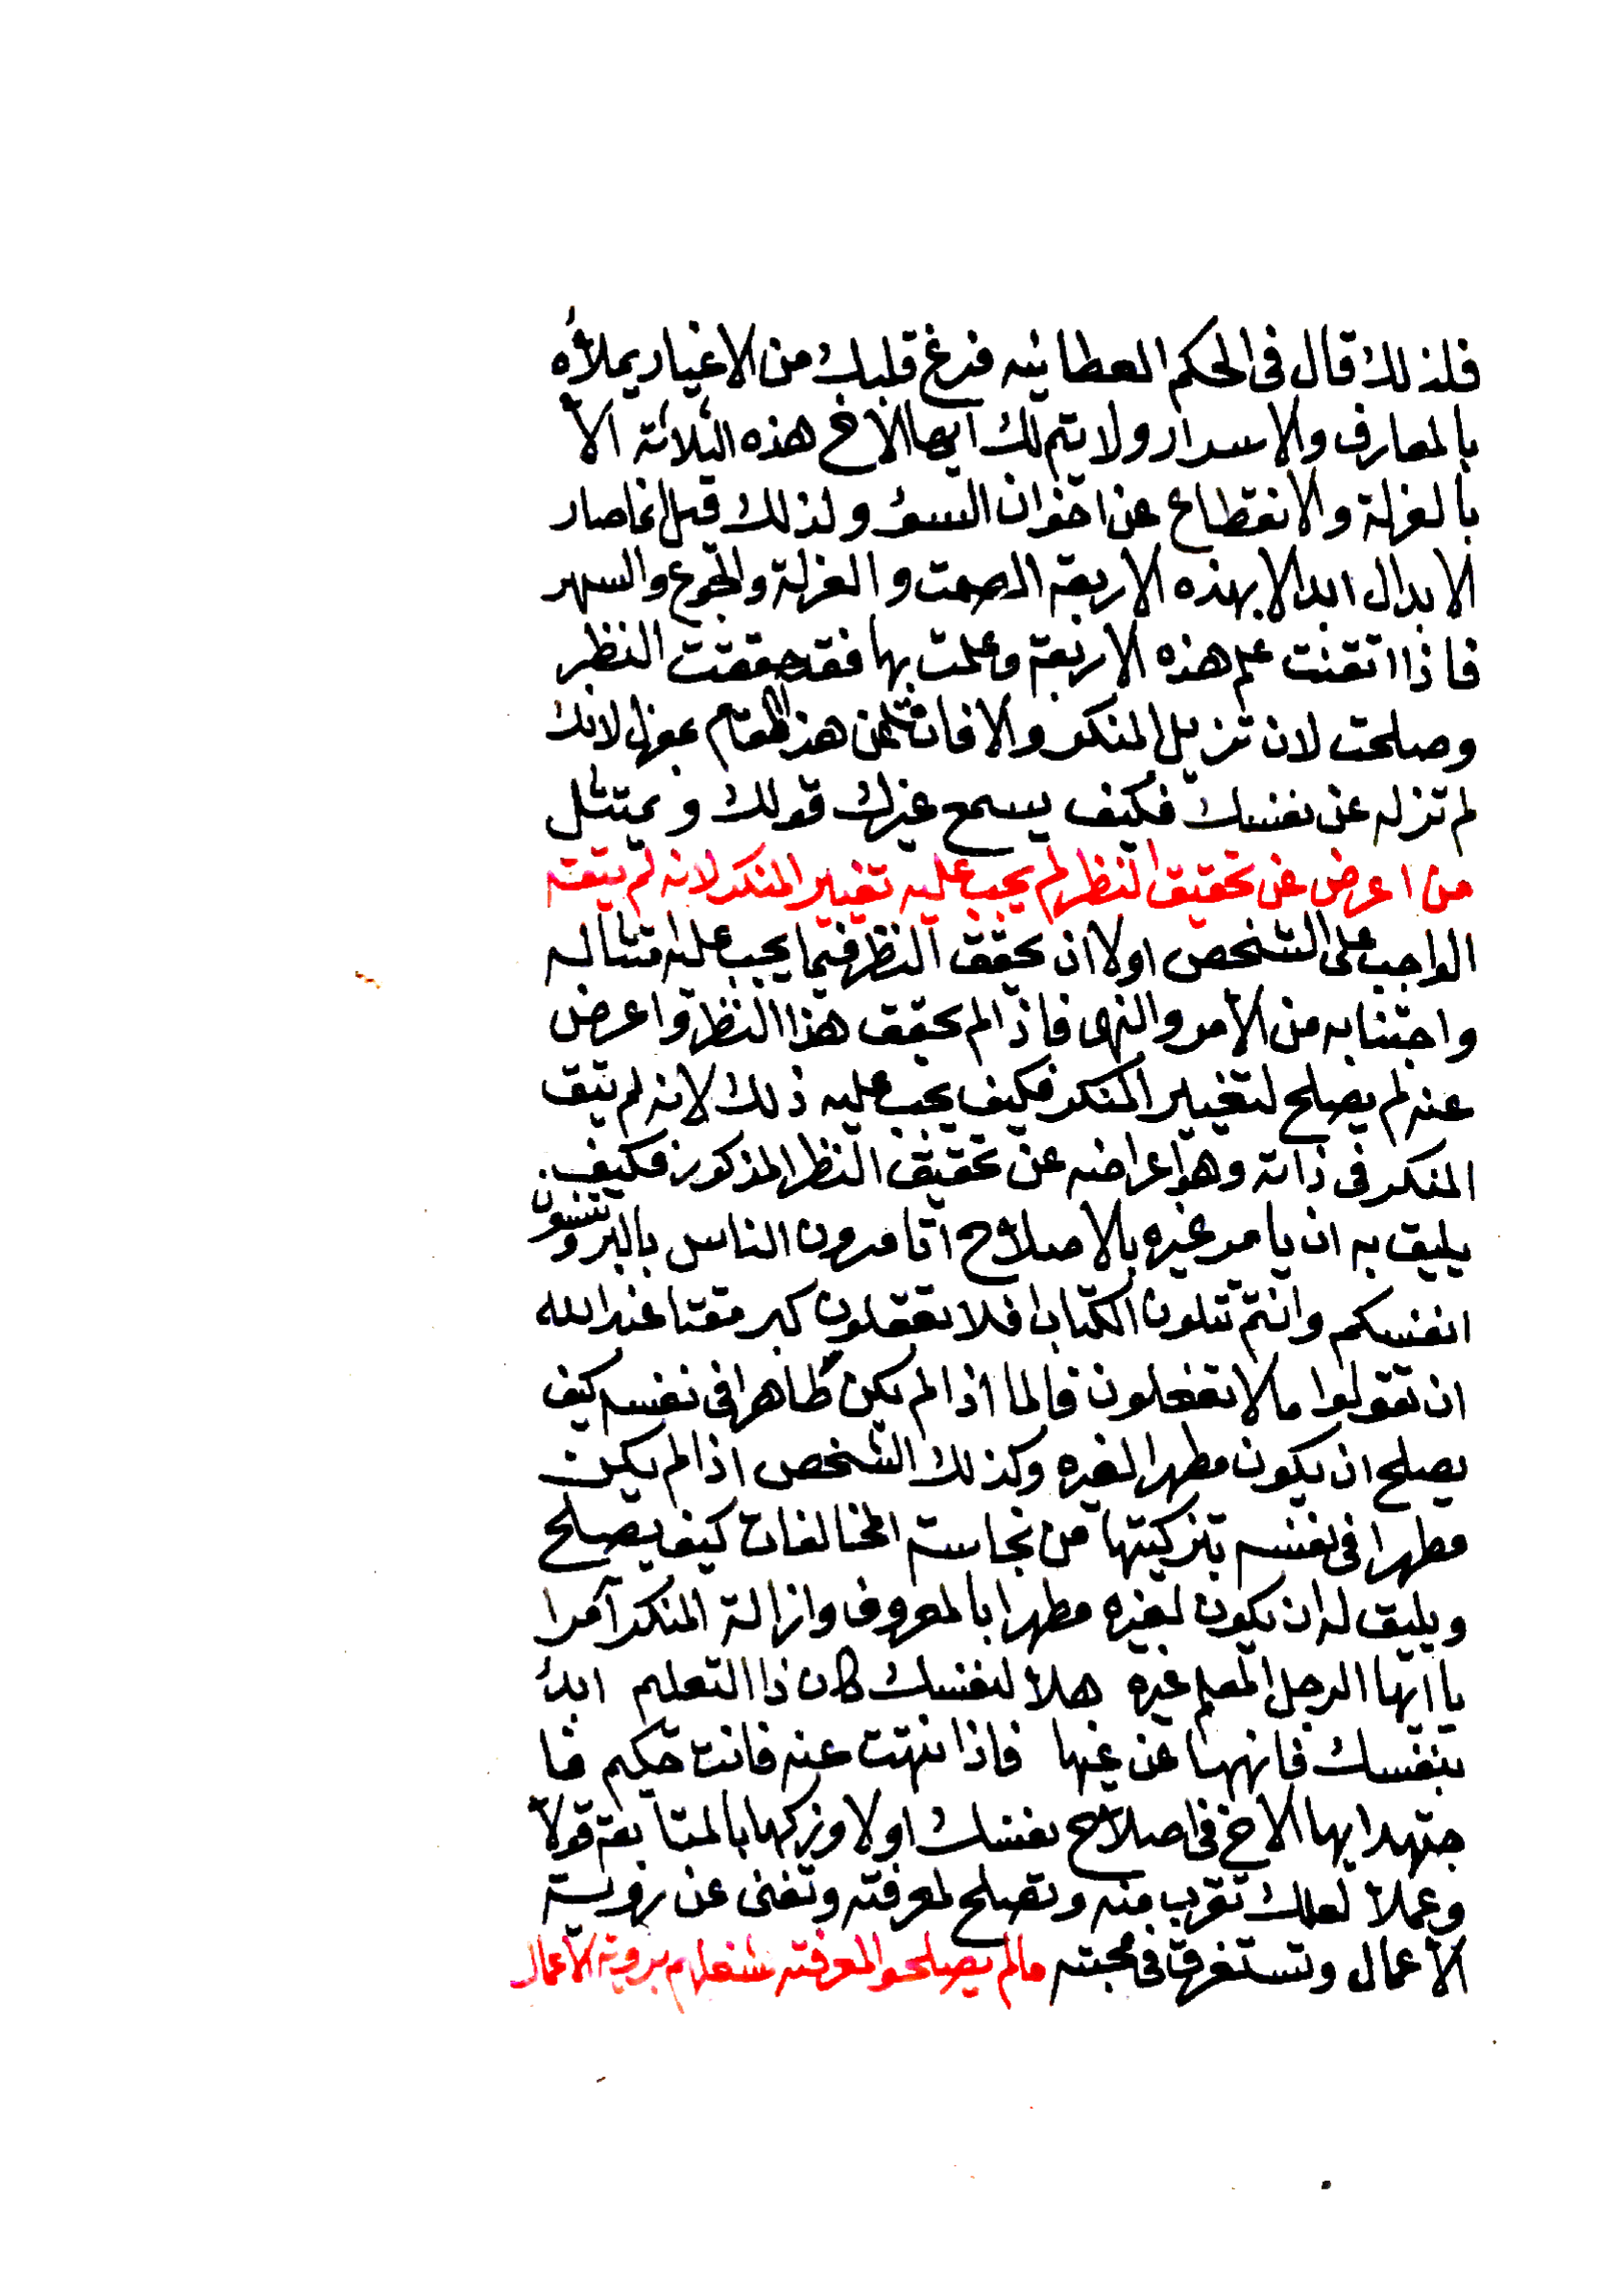 فلذلك قال فى الحكم العطائيه فرغ قلبك من الاغيار يملأه
بالمعارف والاسرار ولا يتم لك ايها الاخ هذه الثلاثة الا
بالعزلة والانقطاع عن اخوان السوء ولذلك قيل انما صار
الابدال ابدالا بهذه الاربعة الصمت والعزلة والجوع والسهر
فاذا اتقنت علم هذه الاربعة وعملت بها فقد حققت النظر
وصلحت لان تزيل المنكر والا فانت من هذا المقام بمعزل لانك
لم تزله عن نفسك فكيف يسمع غيرك قولك ويمتثل
من اعرض عن تحقيق النظر لم يجب عليه تغيير المنكر لانه لم يتقه
الواجب على الشخص اولا ان يحقق النظر فيما يجب عليه امتثاله
واجتنابه من الأمر والنهى فاذا لم يحقق هذا النظر واعرض
عنه لم يصلح لتغيير المنكر فكيف يجب عليه ذلك لانه لم يتق
المنكر فى ذاته وهو اعراضه عن تحقيق النظر المذكور فكيف
يليق به ان يامر غيره بالاصلاح اتامرون الناس بالبر وتنسون
انفسكم وانتم تتلون الكتاب افلا تعقلون كبر مقتا عند الله
ان تقولوا ما لا تفعلون فالما اذا لم يكن طاهرا فى نفسه كيف
يصلح ان يكون مطهرا لغيره وكذلك الشخص اذا لم يكن
مطهرا فى نفسه بتزكيتها من نجاسة المخالفات كيف يصلح
ويليق له ان يكون لغيره مطهرا بالمعروف وازالة المنكر آمرا
يا ايها الرجل المعلم غيره هلا لنفسك كان ذا التعليم ابدأ
بنفسك فانهها عن غيها فاذا انتهت عنه فانت حكيم فا
جتهد ايها الاخ فى اصلاح نفسك اولا وزكها بالمتابعة قولا
وعملا لعلك تقرب منه وتصلح لمعرفته وتفنى عن رؤية
الاعمال وتستغرق فى محبته مالم يصلحوا لمعرفته شغلهم برؤية الاعمال